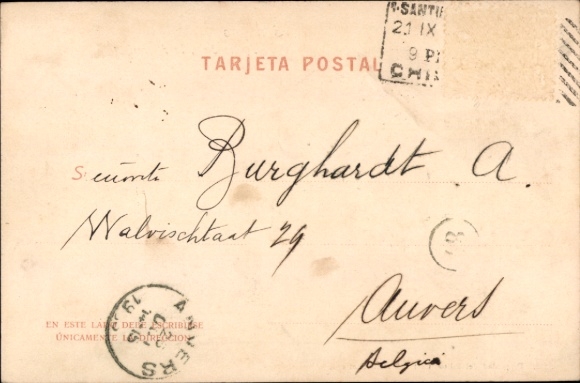 SANTI
21 IX
9 P
CHI
TARJETA POSTAL
Burghardt A.
Walvischtaat 29
Anvers
Belgica
EN ESTE LADO DEBE ESCRIBIRSE
ÚNICAMENTE LA DIRECCIÓN
ANVERS